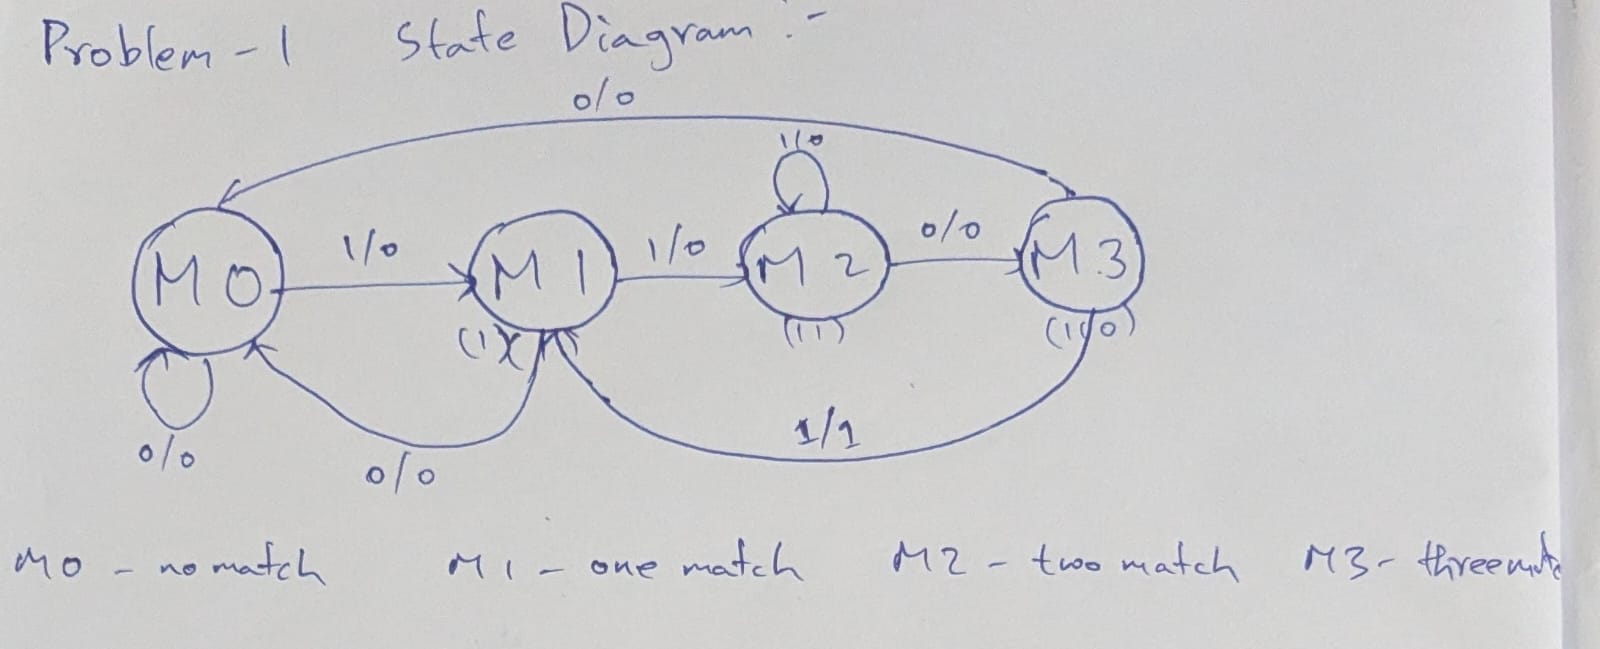 Problem - 1 State Diagram :-
0/0
1/0
1/0 1/0 0/0
M0 M1 M2 M3
(1) (11) (110)
1/1
0/0 0/0
M0 - no match M1 - one match M2 - two match M3 - three